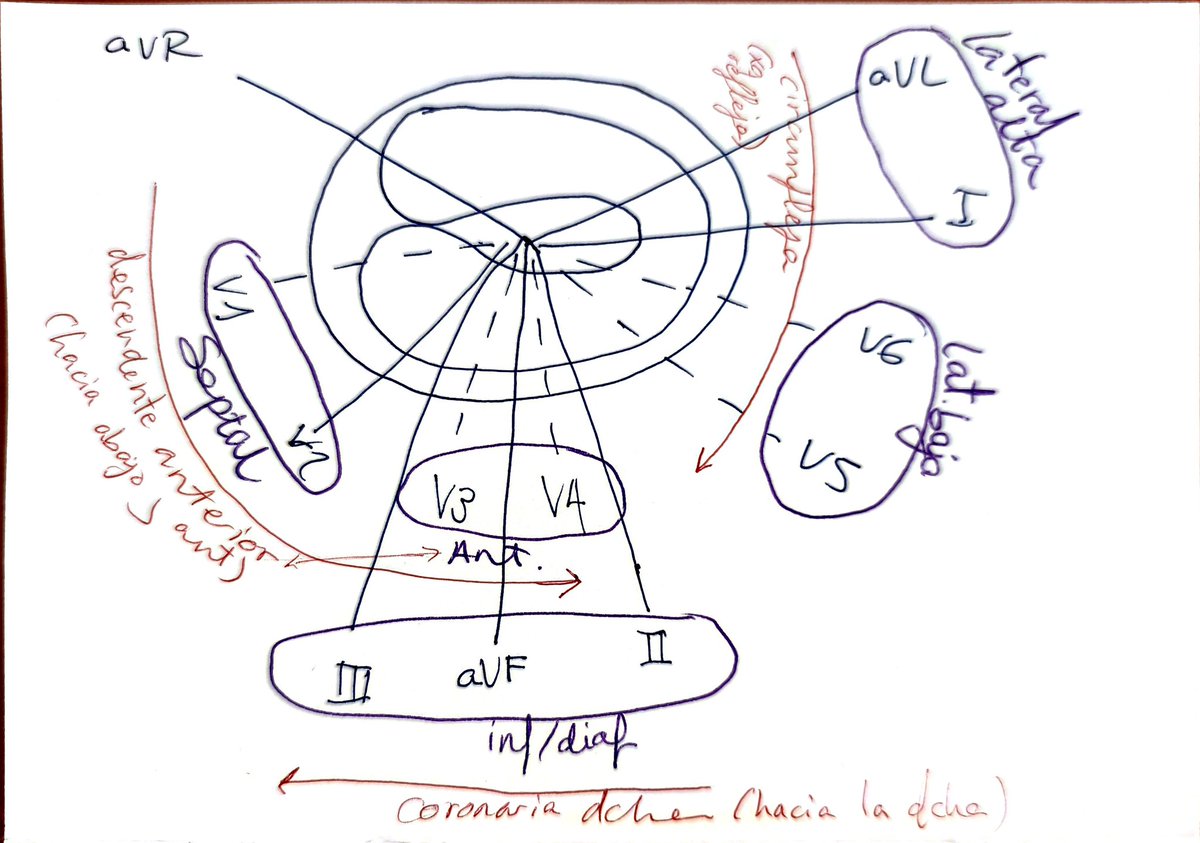 aVR
aVL
I
lateral
alta
circumfleja
(xq
refleja)
V1
V2
Septal
descendente anterior
(hacia abajo y ant)
V6
V5
Lat. baja
V3 V4
Ant.
III aVF II
inf/diaf
coronaria dcha (hacia la dcha)